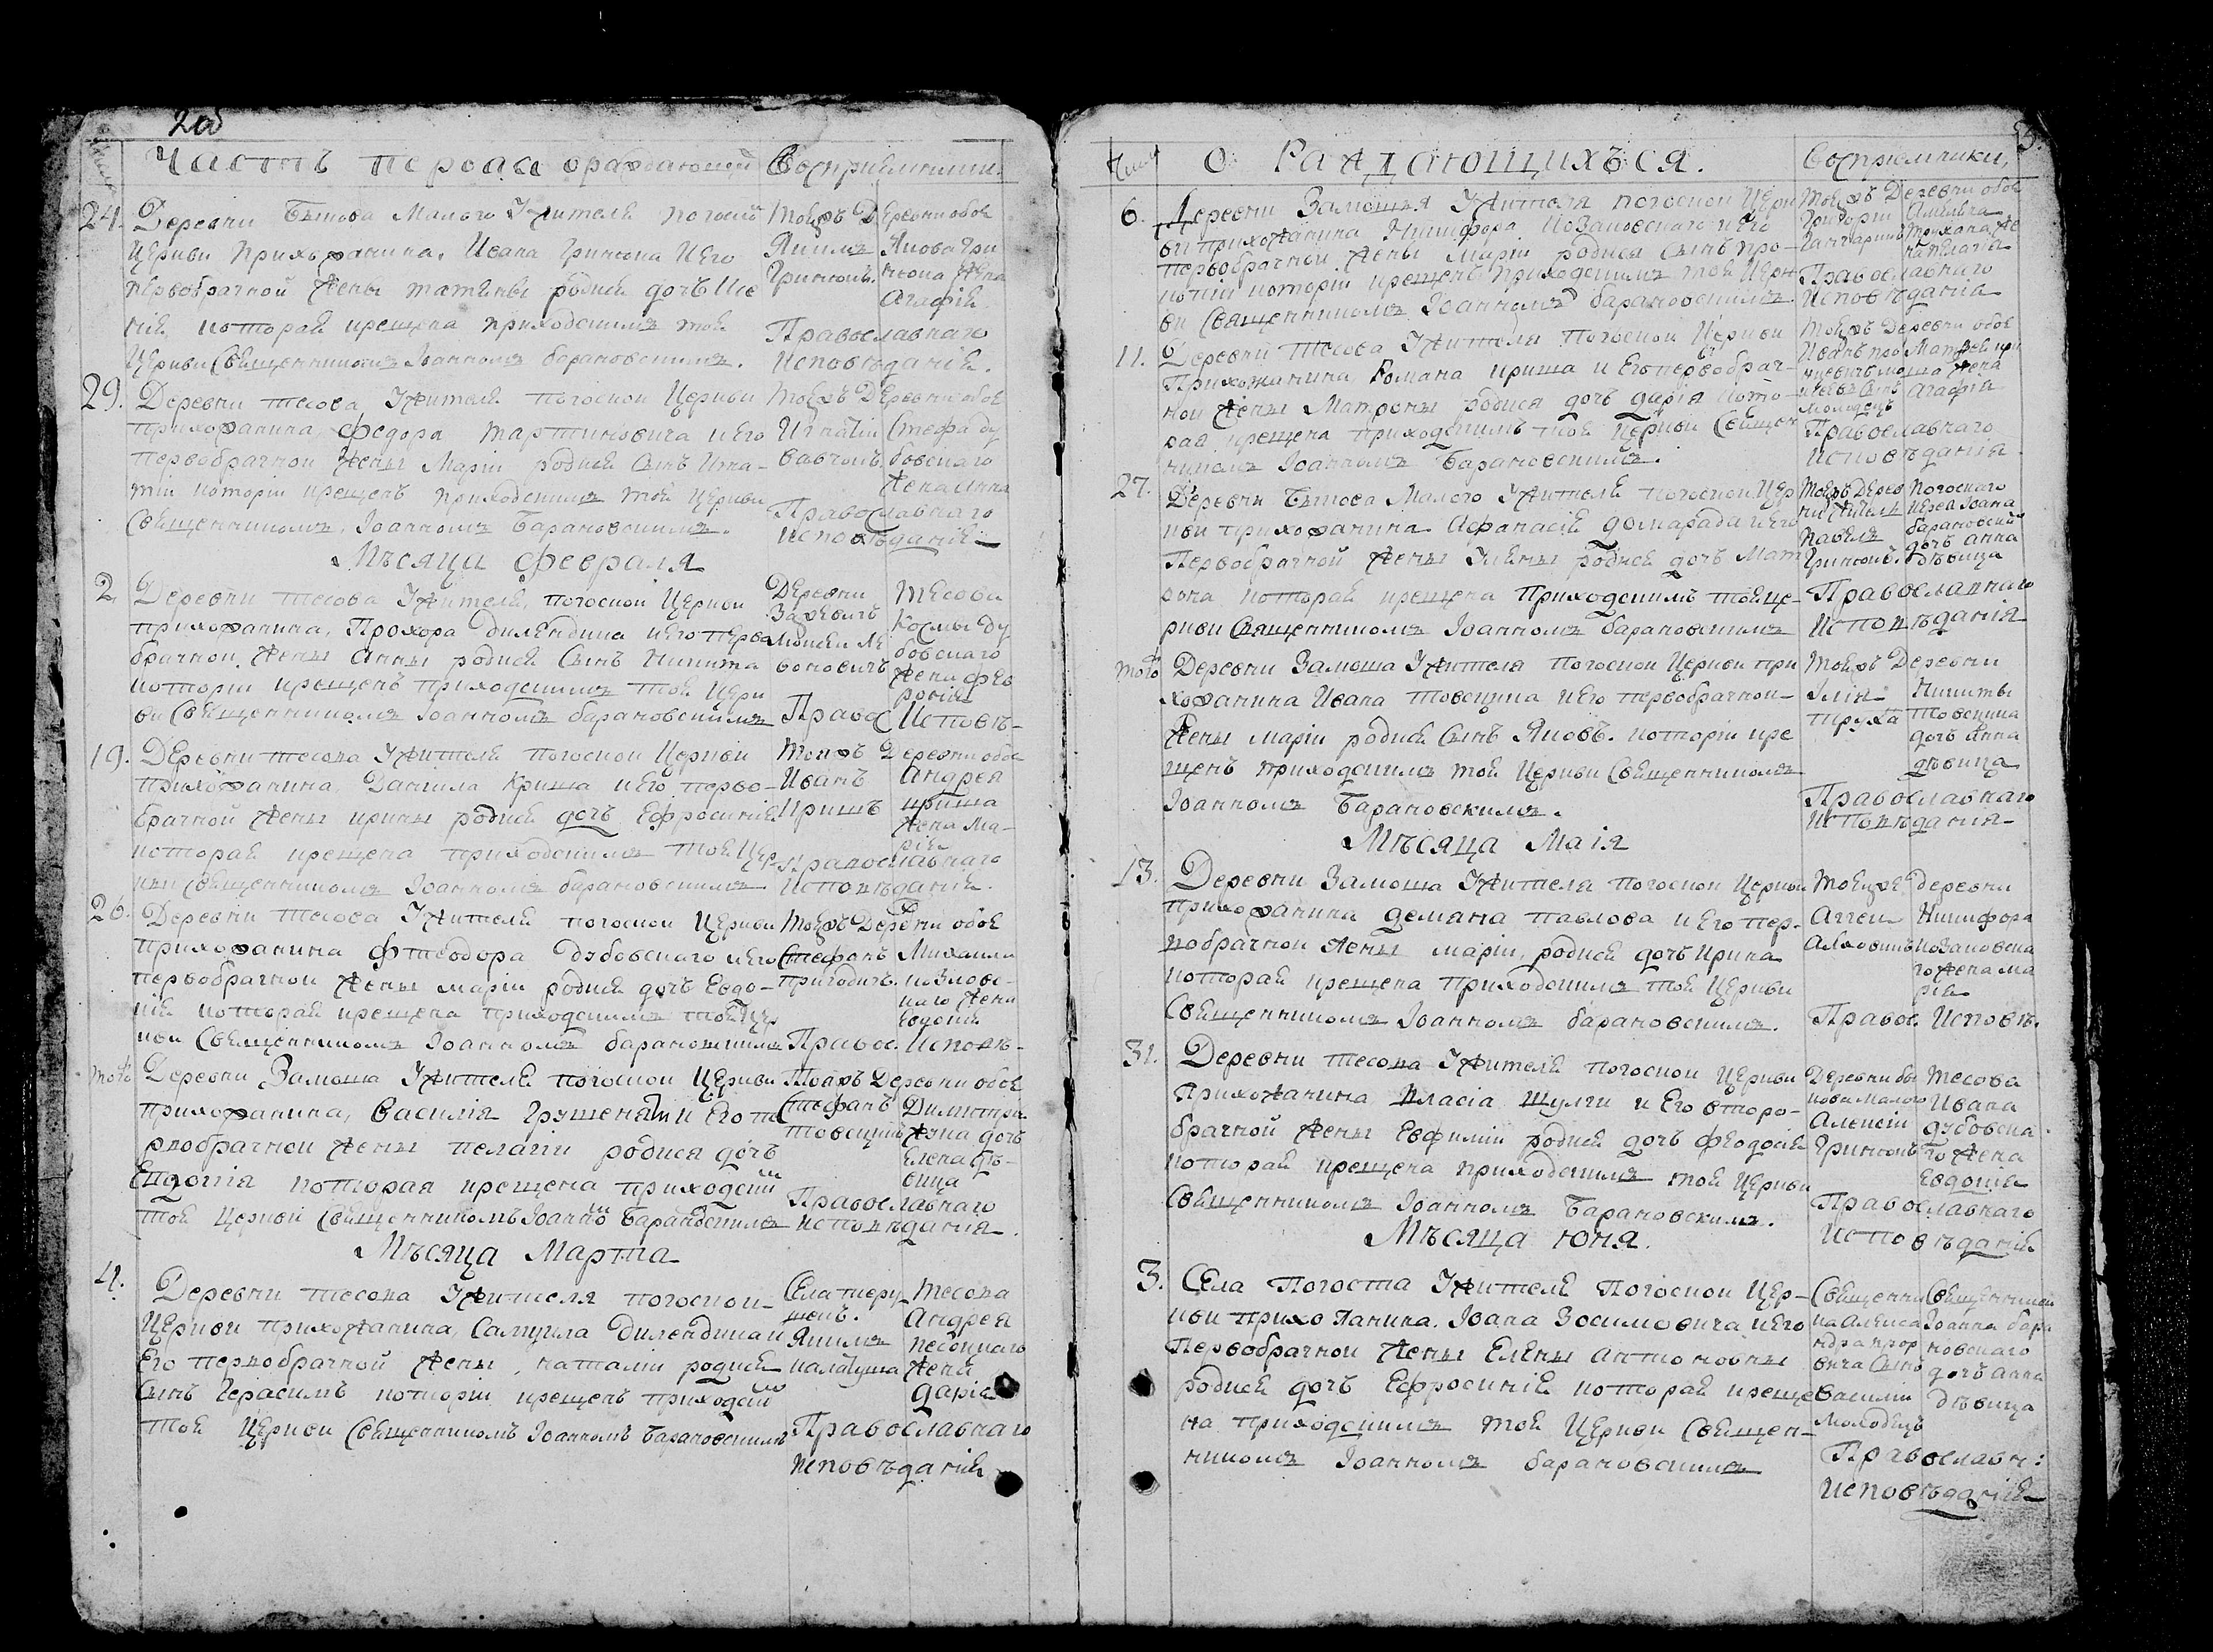 2об
Часть первая ораждающей Восприемники.
24. Деревни Бытова Малого Жителя погоской
Церкви Прихожанина, Ивана Гринюка Иего
первобрачной Жены татияны родися дочь
ния которая крещена приходскимъ тоя
Церкви Священникомъ Іоанномъ барановскимъ.
Тоеяжъ Деревни обое
Якимъ Якова Гри
Гринюкъ. нюка Жена
Агафія
Православнаго
Исповѣданія.
29. Деревни тесова Жителя погоской Церкви
прихожанина, федора мартиновича иего
первобрачной Жены Маріи родися Сынъ Игна-
тій которій крещенъ приходскимъ тоя Церкви
Священникомъ, Іоанномъ Барановскимъ.
Тоеяжъ Деревни обое
Игнатій Стефа ду
бовскаго
Жена Анна
Православнаго
Исповѣданія
Мѣсяца февраля
2. Деревни тесова Жителя, погоской Церкви
прихожанина, Прохора дилендика иего перво
брачной Жены Анны родися Сынъ Никита
которій крещенъ приходскимъ тоя Церк
ви Священникомъ Іоанномъ барановскимъ
Деревни Тесова
Козмы ду
бовскаго
Жена фев
ронія
Правос Исповѣ-
19. Деревни тесова Жителя погоской Церкви
прихожанина, Даніила Криша иего перво-
брачной Жены ирины родися дочь Ефросинія
которая крещена приходскимъ тоя Цер
кви Священникомъ Іоанномъ барановскимъ
Тоежъ Деревни обое
Иванъ Андрея
Кришъ криша
Жена Ма-
рія
православнаго
Исповѣданія.
26. Деревни тесова Жителя погоской Церкви
прихожанина фтеодора дубовскаго иего
первобрачной Жены маріи родися дочь Евдо-
кія которая крещена приходскимъ тоя Цер
кви Священникомъ Іоанномъ барановскимъ
Тоежъ Деревни обое
Стефанъ Михаила
пригодичъ. козловс-
каго Жена
Евдокія
Правос. Исповѣ-
того Деревни Замоша Жителя погоской Церкви
прихожанина, Василія Грушенятки Его пе
рвобрачной Жены пелагіи родися дочь
Евдокія которая крещена приходски
тоя Церкви Священникомъ Іоанно Барановскимъ
Тояжъ Деревни обое
Стефанъ Димитра
товсцикъ дочь
Елена дѣ-
вица
Православнаго
исповѣданія.
Мѣсяца Марта
4. Деревни тесова Жителя погоской
Церкви прихожанина, Самуила Дилендика и
Его первобрачной Жены, наталіи родися
Сынъ Герасимъ которій крещенъ приходски
тоя Церкви Священникомъ Іоанномъ Барановскимъ
Села теру Тесова
шекъ. Андрея
Якимъ песоцкаго
калауша Жена
дарія
Православнаго
Исповѣданія
3.
Числ О Раждающихъся. Воспріемники,
6. Деревни Замошья Жителя погоской Церк
ви прихожанина Никифора Козановскаго иего
первобрачной Жены Маріи родися Сынъ про-
копій которій крещенъ приходскимъ тоя Церк
ви Священникомъ Іоанномъ барановскимъ
Тоежъ Деревни обое
Григорій
Ганчарикъ Трухана Же
на пелагія
Православнаго
Исповѣданія
11. Деревни тесова Жителя погоской Церкви
Прихожанина, Романа криша и Его первобрач-
ной Жены Матроны родися дочь дарія кото-
рая крещена приходскимъ тоя Церкви Священ
никомъ Іоанномъ Барановскимъ.
Тоежъ Деревни обое
Иванъ про Матфея кри
ша Жена
Сынъ Агафія
Молодецъ
Православнаго
исповѣданія
27. Деревни Бытова Малого Жителя погоской Цер
кви прихожанина Афанасія домарада иего
Первобрачной Жены Улены родися дочь Мат
рона которая крещена Приходскимъ тояце-
ркви Священникомъ Іоанномъ барановскимъ
Тоежъ Дерев Погоскаго
ни Житель Иерея Іоана
Павелъ барановский
Гринюкъ. дочь анна
дѣвица
Православнаго
Исповѣданія
того Деревни Замоша Жителя погоской Церкви при
хожанина Ивана товсцика иего первобрачной-
Жены маріи родися Сынъ Яковъ. которій кре
щенъ приходскимъ тоя Церкви Священникомъ
Іоанномъ Барановскимъ.
Тоежъ Деревни
Илія Никиты
труха товсцика
дочь Анна
дѣвица
Православнаго
Исповѣданія-
Мѣсяца Маія
13. Деревни Замоша Жителя погоской Церкви
прихожанина демяна павлова и Его пер-
вобрачной Жены маріи, родися дочь Ирина
которая крещена приходскимъ тоя Церкви
Священникомъ Іоанномъ барановскимъ.
Тоеяжъ деревни
Аггеи Никифора
козановска
го Жена ма
рія
Правос. Исповѣ.
31. Деревни тесова Жителя погоской Церкви
Прихожанина Власія Шулги и Его второ-
брачной Жены Евфиміи родися дочь феодосія
которая крещена приходскимъ тоя Церкви
Священникомъ Іоанномъ Барановскимъ.
Деревни бы Тесова
това малого Ивана
Алексій дубовска
Гринюкъ го Жена
Евдокія
Православнаго
Исповѣданія
Мѣсяца юня.
3. Села Погоста Жителя Погоской Цер-
кви прихожанина. Іоана Зосимовича иего
Первобрачной Жены Елены антоновны
родися дочь Ефросинія которая креще
на приходскимъ тоя Церкви Священ-
никомъ Іоанномъ барановскимъ
Священни Священника
ка Алекса Іоанна бара
ндра новскаго
вича Сынъ дочь анна
Василій дѣвица
Молодецъ
Православн:
Исповѣданія